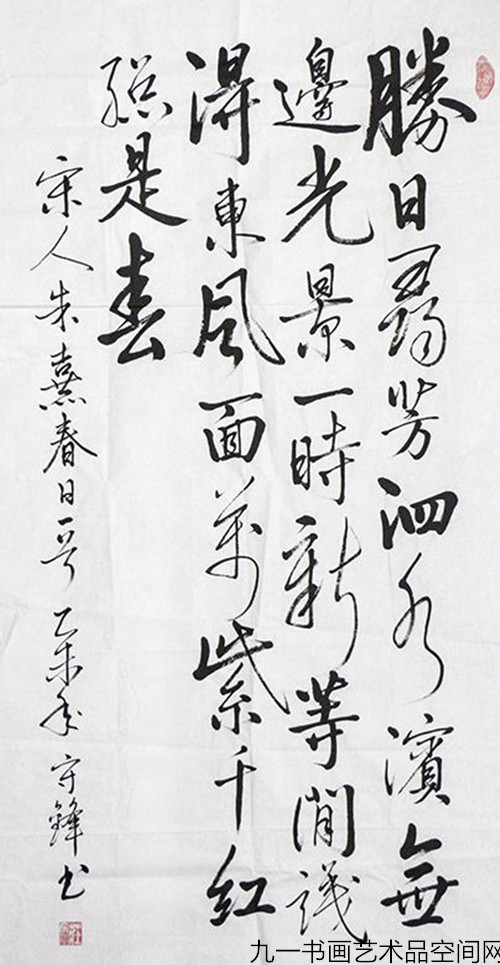 勝日尋芳泗水濱無
邊光景一時新等閒識
得東風面萬紫千紅
總是春
宋人朱熹春日一首 乙未年 守鋒书
九一书画艺术品空间网